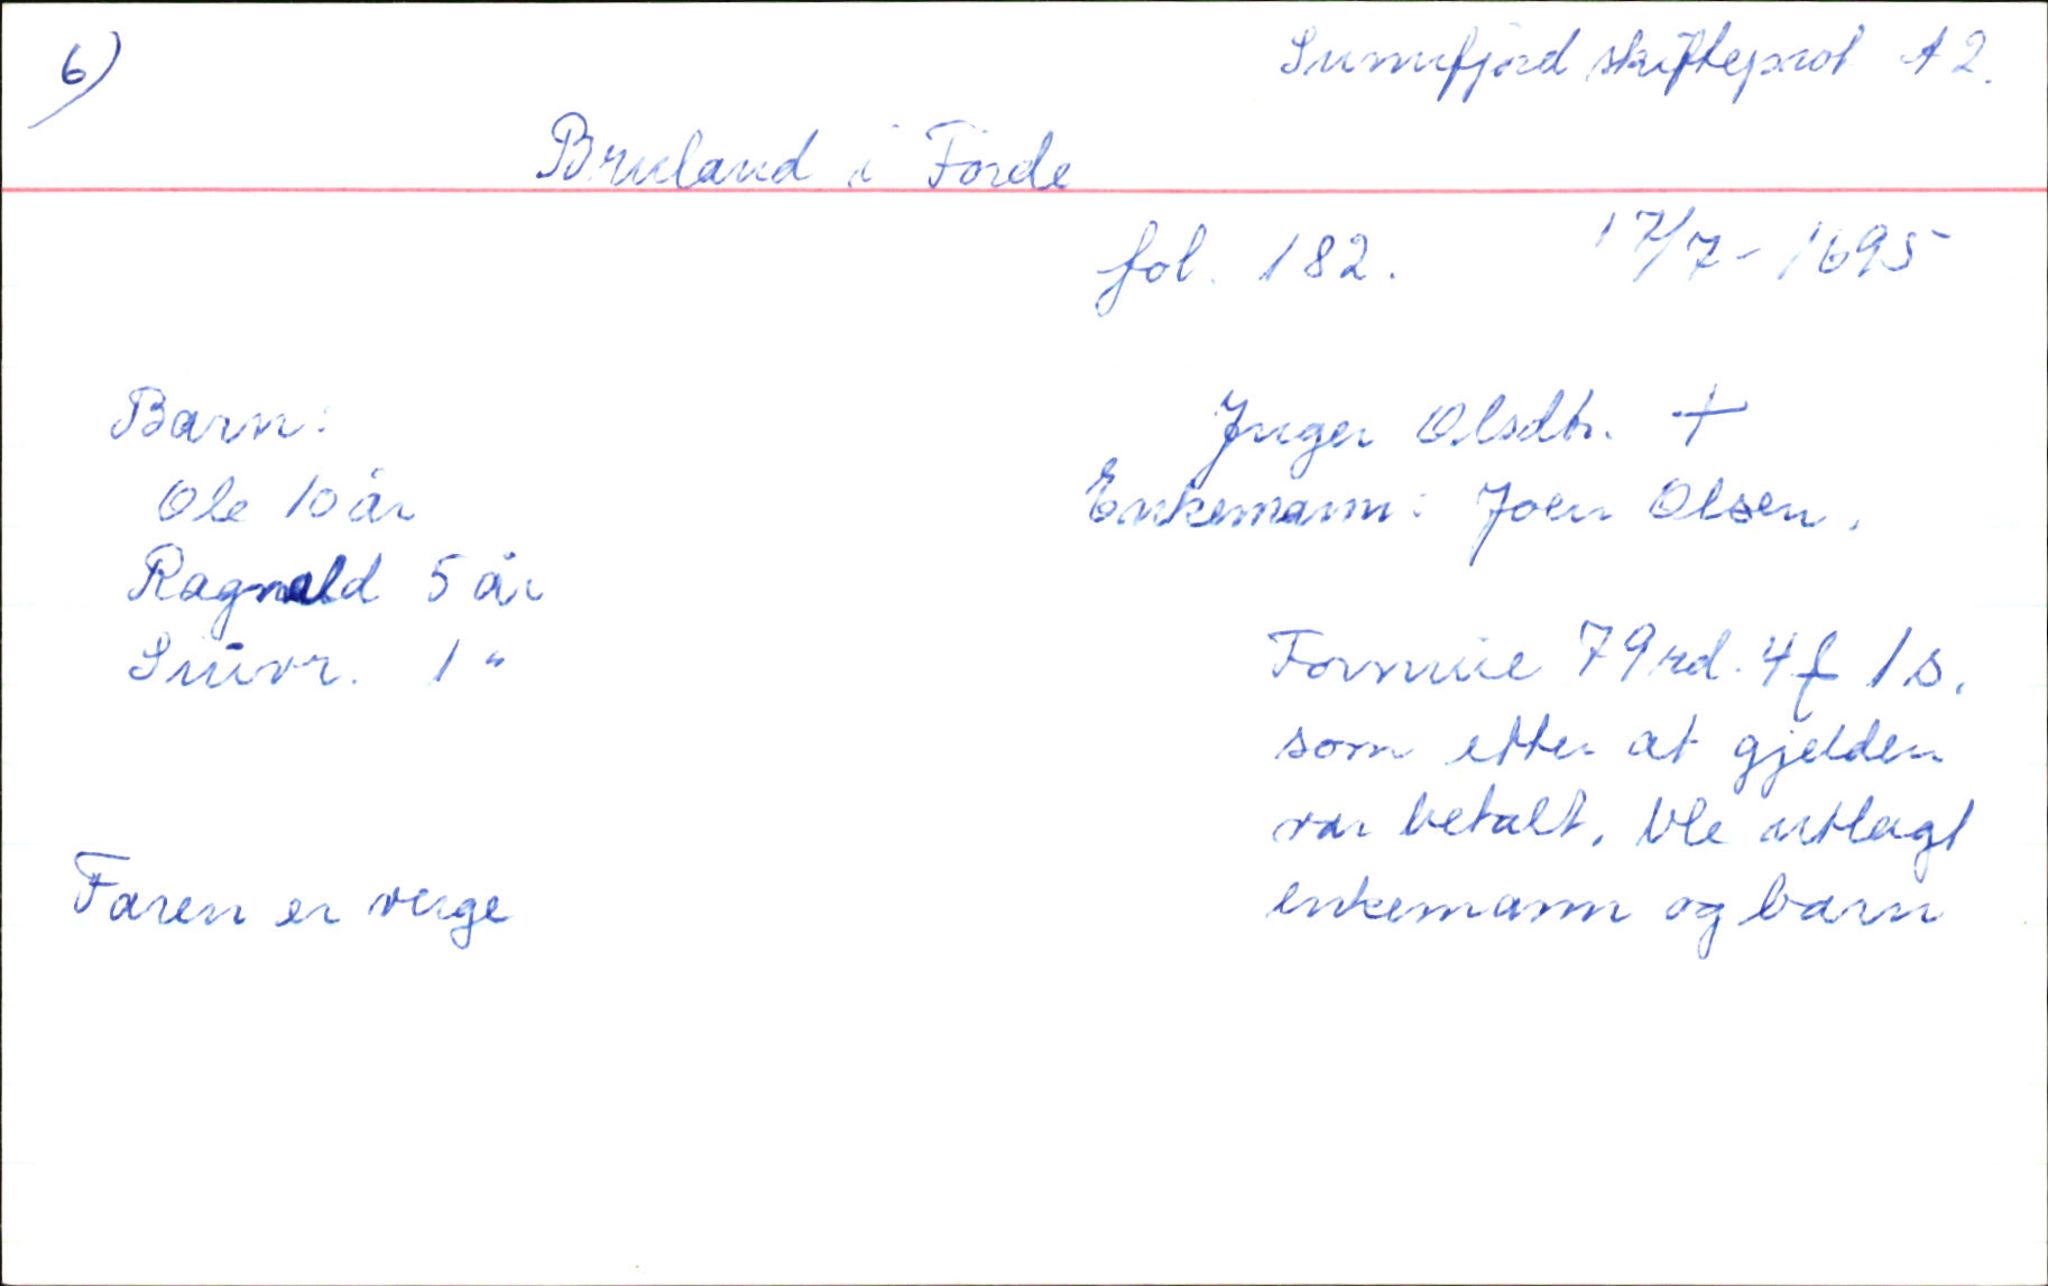 6)
Sunnfjord skifteprot A 2.
Bruland i Førde
fol. 182. 17/7 - 1695
Barn:
Ole 10 år
Ragnald 5 år
Siuvr. 1 "
Faren er verge
Inger Olsdtr. +
Enkemann: Joen Olsen.
Formue 79 rd. 4 f 1 s.
som etter at gjelden
var betalt, ble utlagt
enkemann og barn